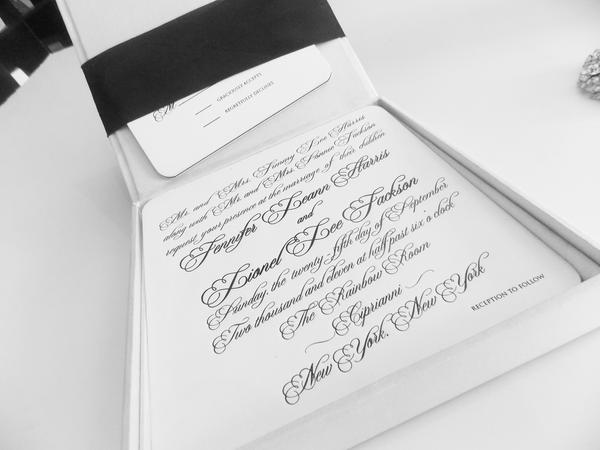 M
GRACIOUSLY ACCEPTS
REGRETFULLY DECLINES
Mr. and Mrs. Timmy Lee Harris
along with Mr. and Mrs. Lionner Jackson
request your presence at the marriage of their children
Jennifer Leann Harris
and
Lionel Lee Jackson
Sunday, the twenty fifth day of September
Two thousand and eleven at half past six o'clock
The Rainbow Room
Ciprianni
New York, New York
RECEPTION TO FOLLOW